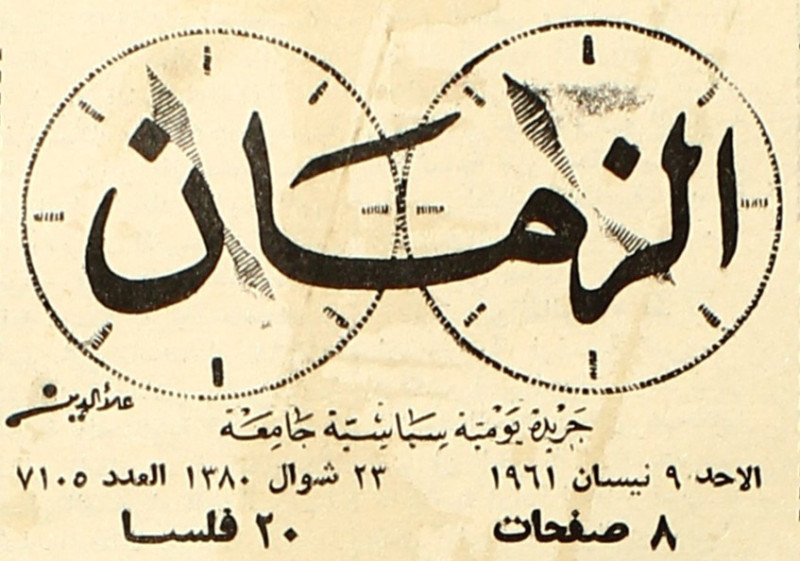 الزمان
علاء الدين
جريدة يومية سياسية جامعة
الاحد ٩ نيسان ١٩٦١ ٢٣ شوال ١٣٨٠ العدد ٧١٠٥
٨ صفحات ٢٠ فلسا